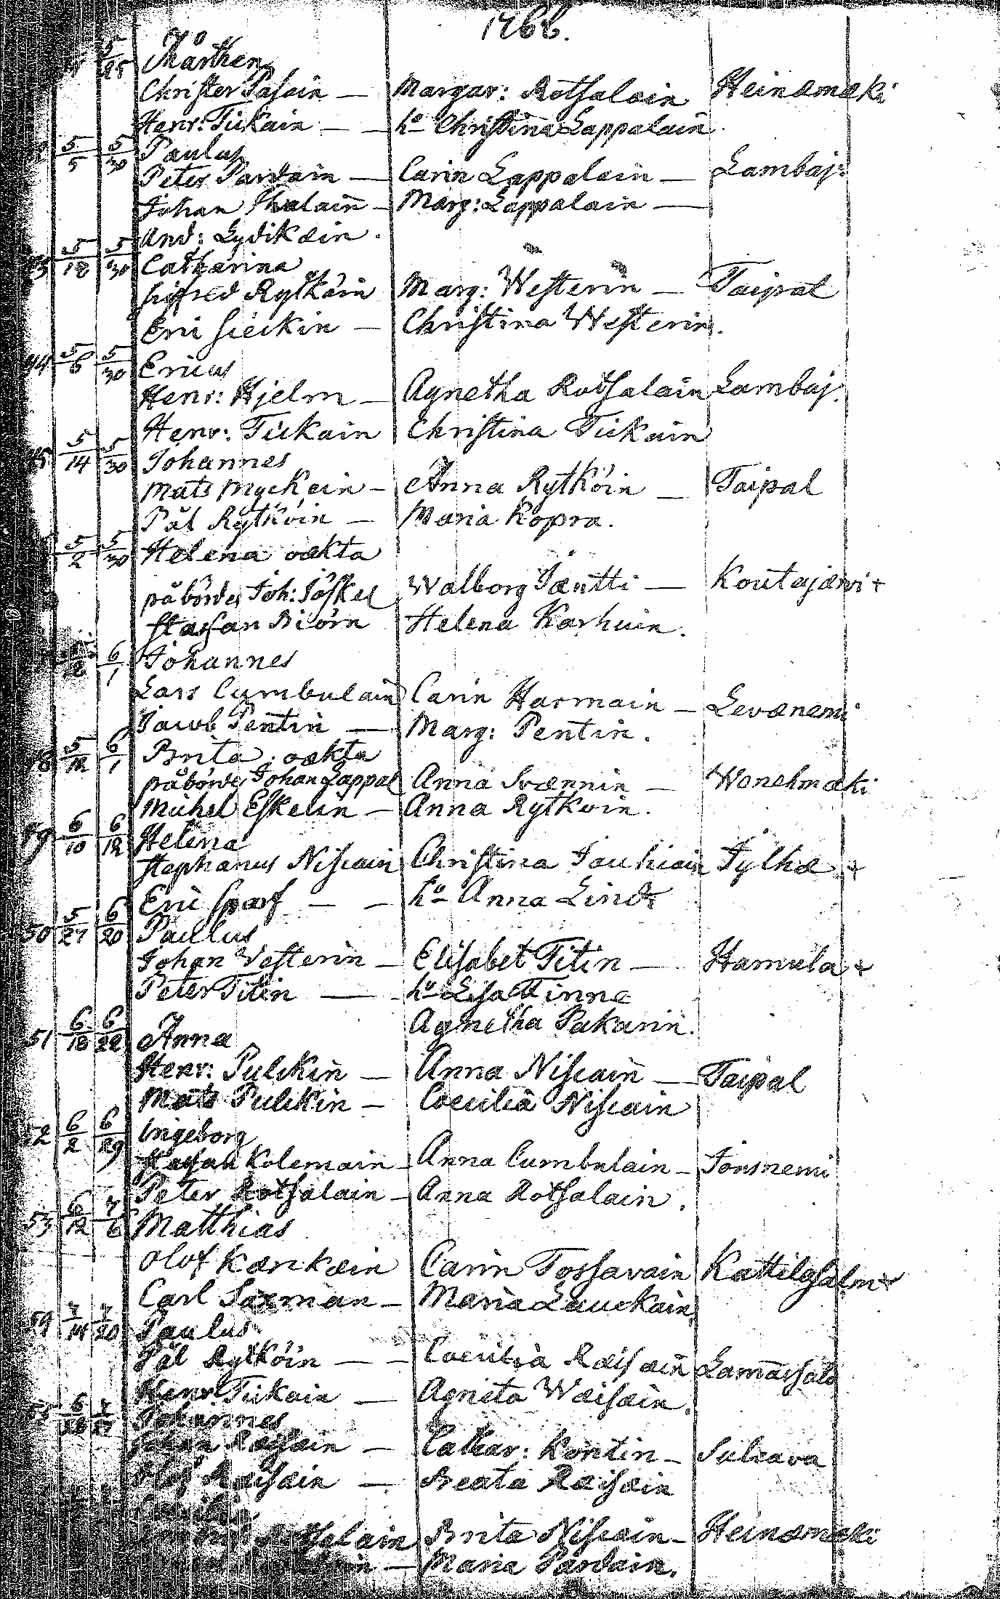 1766.
5/25 Mårthen
Christer Pasain — Margar: Rotsalain Heinämäki
Henr: Tiikain — — h:o Christina Lappalain
5/5 5/30 Paulus
Peter Pardain — Carin Lappalain — Lambaj:
Johan Ihalain — Marg: Lappalain —
And: Lydikäin.
5/18 5/30 Catharina
Sigfred Rytköin Marg: Westerin — Taipal
Eric Sickin — Christina Westerin.
44 5/6 5/30 Ericus
Henr: Hjelm — Agnetha Rotsalain Lambaj.
Henr: Tiikain Christina Tiikain
45 5/14 5/30 Johannes
Mats Myckäin — Anna Rytköin — Taipal
Pål Rytköin — Maria Kopra.
5/2 5/30 Helena oäkta
påbördes Joh: Jöskel Walborg Jäntti — Koutajärvi +
Staffan Biörn Helena Karhuin.
6/1 Johannes
Lars Cumbulain Carin Harmain — Levänemi
Jacob Pentin — Marg: Pentin.
48 5/12 6/1 Brita, oäkta
påbördes Johan Lappal Anna Svännin — Wonehmäki
Michel Eskelin — Anna Rytköin.
49 6/10 6/12 Helena
Stephanus Niscain Christina Jauhiain Jylhä +
Eric Sparf — — h:o Anna Lind
50 5/27 6/20 Paulus
Johan Vesterin — Elisabet Titin — Hamula +
Peter Titin — h:o Lisa Minna
Agnetha Pakarin.
51 6/18 6/22 Anna
Henr: Pulckin — Anna Niscain — Taipal
Mats Pulckin — Coecilia Niscain
52 6/2 6/29 Ingeborg
Staffan Kolemain — Anna Cumbulain — Jonsnemi
Peter Rotsalain — Anna Rotsalain.
53 6/12 7/6 Matthias
Olof Kärckäin Carin Tossavain Kattilasalm +
Carl Saxman — Maria Lauckain.
54 7/14 7/20 Paulus
Pål Rytköin — — Coecilia Räisäin Lamassalo
Henr Tiikain — Agneta Wäisäin.
55 6/28 7/27 Johannes
Johan Räisäin — Cathar: Kontin — Saleava
Olof Räisäin — Beata Räisäin
Brita Niscain — Heinämäki
— Maria Pardain.